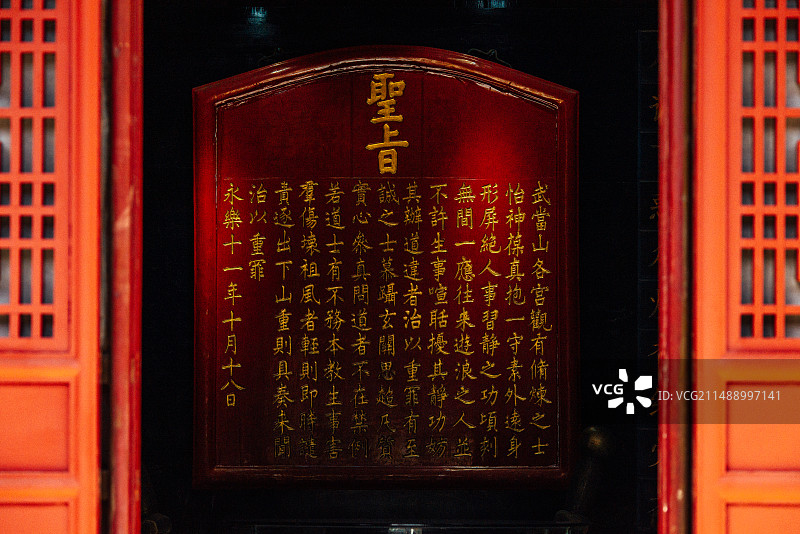 聖旨
武當山各宮觀有脩煉之士
怡神葆真抱一守素外遠身
形屏絕人事習靜之功頃刻
無間一應往來遊浪之人並
不許生事喧聒擾其靜功妨
其辦道違者治以重罪有至
誠之士慕躡玄關思超凡質
實心參真問道者不在禁例
若道士有不務本教生事害
群傷壞祖風者輕則即時譴
責逐出下山重則具奏來聞
治以重罪
永樂十一年十月十八日
VCG
VCG ID:VCG211488997141